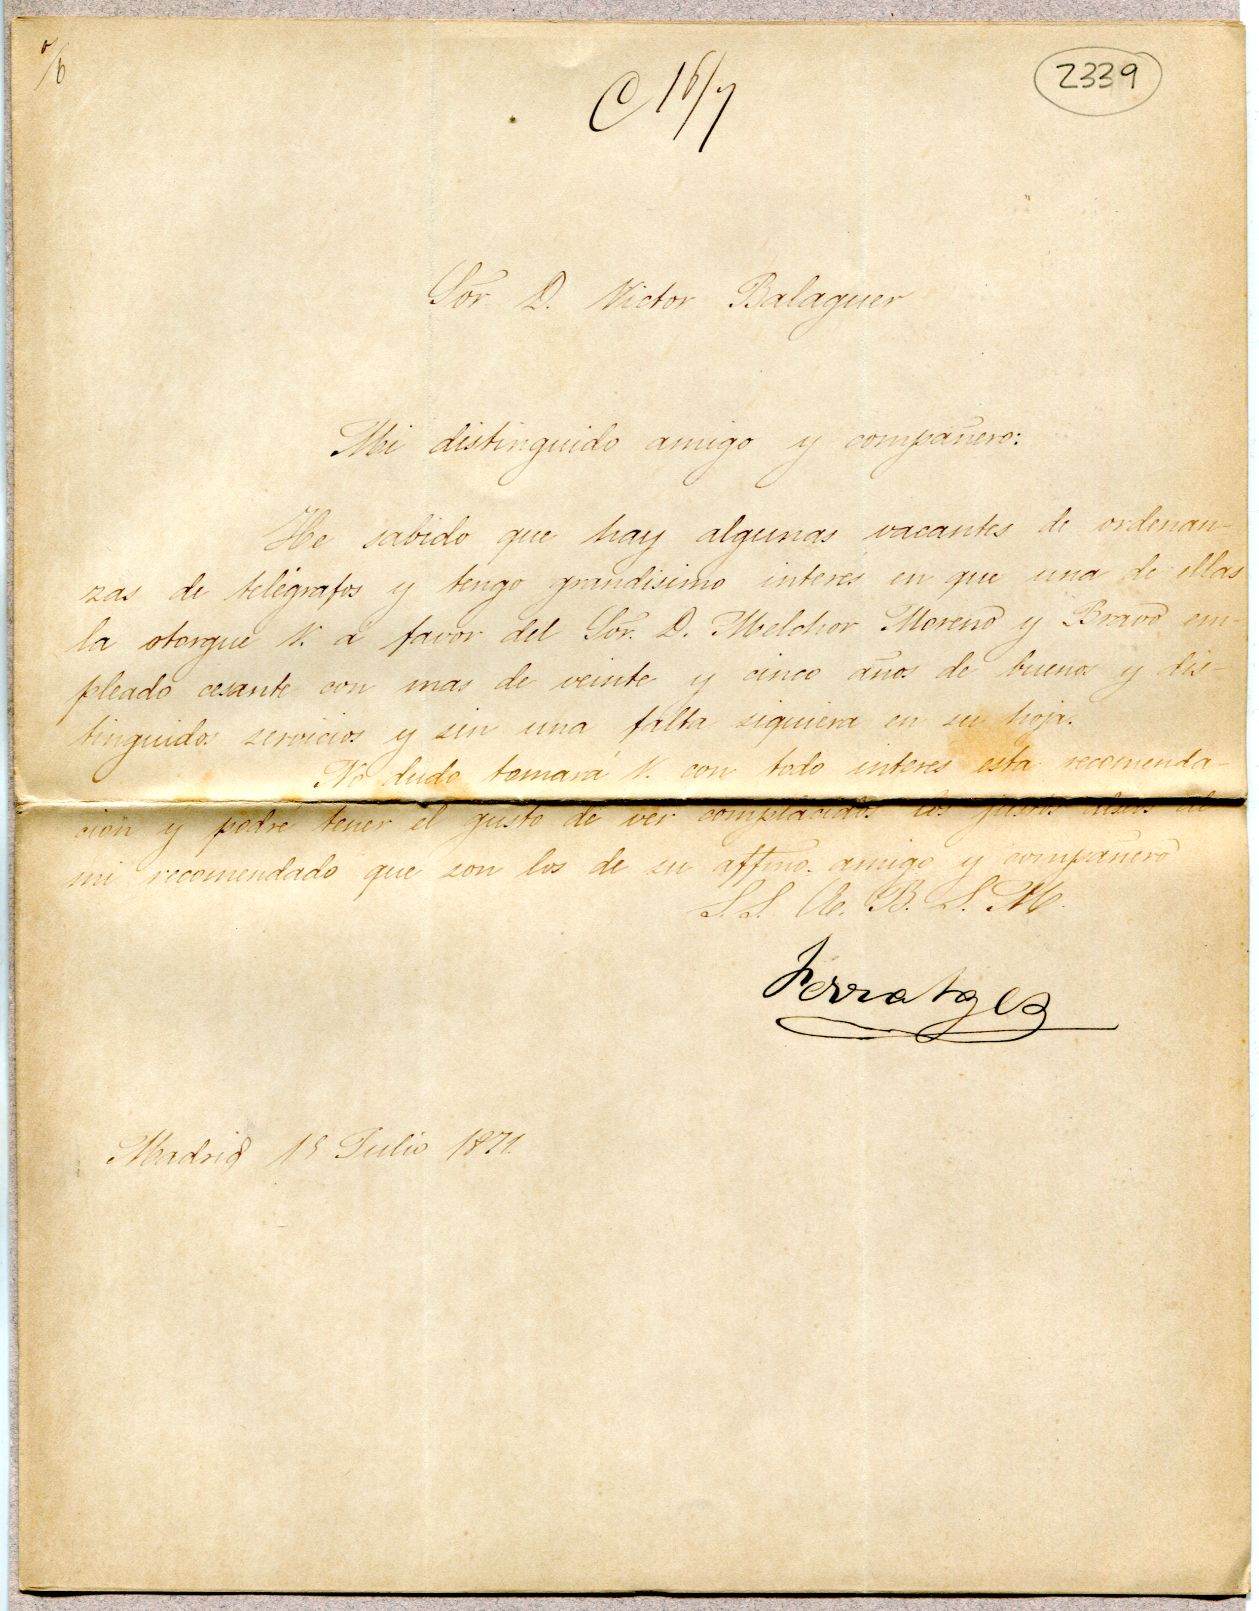 6
C 16/7
2339
Sor D. Victor Balaguer
Mi distinguido amigo y compañero:
He sabido que hay algunas vacantes de ordenan-
zas de telégrafos y tengo grandisimo interes en que una de ellas
la otorgue V. á favor del Sor. D. Melchor Moreno y Bravo em-
pleado cesante con mas de veinte y cinco años de buenos y dis-
tinguidos servicios y sin una falta siquiera en su hoja.
No dudo tomará V. con todo interes esta recomenda-
cion y podré tener el gusto de ver complacidos los justos deseos de
mi recomendado que son los de su affmo. amigo y compañero
S. S. Q. B. S. M.
Ferratges
Madrid 15 Julio 1871.